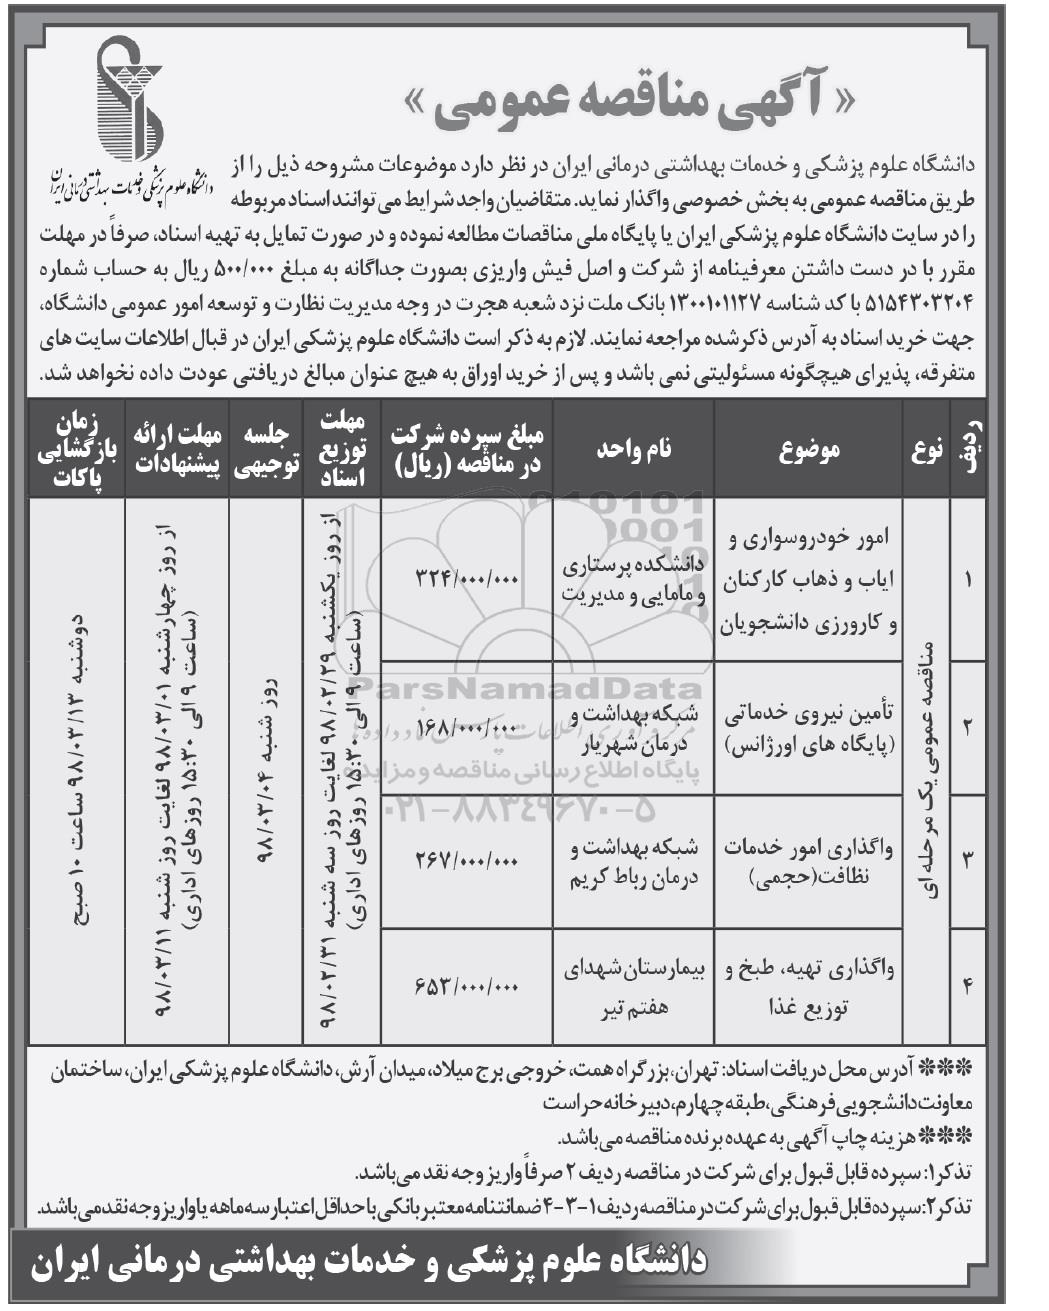 « آگهی مناقصه عمومی »
دانشگاه علوم پزشکی و خدمات بهداشتی درمانی ایران
دانشگاه علوم پزشکی و خدمات بهداشتی درمانی ایران در نظر دارد موضوعات مشروحه ذیل را از
طریق مناقصه عمومی به بخش خصوصی واگذار نماید. متقاضیان واجد شرایط می توانند اسناد مربوطه
را در سایت دانشگاه علوم پزشکی ایران یا پایگاه ملی مناقصات مطالعه نموده و در صورت تمایل به تهیه اسناد، صرفاً در مهلت
مقرر با در دست داشتن معرفینامه از شرکت و اصل فیش واریزی بصورت جداگانه به مبلغ ۵۰۰/۰۰۰ ریال به حساب شماره
۵۱۵۴۳۰۳۲۰۴ با کد شناسه ۱۳۰۰۱۰۱۱۲۷ بانک ملت نزد شعبه هجرت در وجه مدیریت نظارت و توسعه امور عمومی دانشگاه،
جهت خرید اسناد به آدرس ذکرشده مراجعه نمایند. لازم به ذکر است دانشگاه علوم پزشکی ایران در قبال اطلاعات سایت های
متفرقه، پذیرای هیچگونه مسئولیتی نمی باشد و پس از خرید اوراق به هیچ عنوان مبالغ دریافتی عودت داده نخواهد شد.
ردیف
نوع
موضوع
نام واحد
مبلغ سپرده شرکت
در مناقصه (ریال)
مهلت
توزیع
اسناد
جلسه
توجیهی
مهلت ارائه
پیشنهادات
زمان
بازگشایی
پاکات
۱
مناقصه عمومی یک مرحله ای
امور خودروسواری و
ایاب و ذهاب کارکنان
و کارورزی دانشجویان
دانشکده پرستاری
و مامایی و مدیریت
۳۲۴/۰۰۰/۰۰۰
از روز یکشنبه ۹۸/۰۲/۲۹ لغایت روز سه شنبه ۹۸/۰۲/۳۱
(ساعت ۹ الی ۱۵:۳۰ روزهای اداری)
روز شنبه ۹۸/۰۳/۰۴
از روز چهارشنبه ۹۸/۰۳/۰۱ لغایت روز شنبه ۹۸/۰۳/۱۱
(ساعت ۹ الی ۱۵:۳۰ روزهای اداری)
دوشنبه ۹۸/۰۳/۱۳ ساعت ۱۰ صبح
۲
تأمین نیروی خدماتی
(پایگاه های اورژانس)
شبکه بهداشت و
درمان شهریار
۱۶۸/۰۰۰/۰۰۰
۳
واگذاری امور خدمات
نظافت(حجمی)
شبکه بهداشت و
درمان رباط کریم
۲۶۷/۰۰۰/۰۰۰
۴
واگذاری تهیه، طبخ و
توزیع غذا
بیمارستان شهدای
هفتم تیر
۶۵۳/۰۰۰/۰۰۰
ParsNamadData
پایگاه اطلاع رسانی مناقصه و مزایده
۰۲۱-۸۸۳۴۹۶۷۰-۵
*** آدرس محل دریافت اسناد: تهران،بزرگراه همت، خروجی برج میلاد، میدان آرش، دانشگاه علوم پزشکی ایران، ساختمان
معاونت دانشجویی فرهنگی،طبقه چهارم،دبیرخانه حراست
*** هزینه چاپ آگهی به عهده برنده مناقصه می باشد.
تذکر۱: سپرده قابل قبول برای شرکت در مناقصه ردیف ۲ صرفاً واریز وجه نقد می باشد.
تذکر۲: سپرده قابل قبول برای شرکت در مناقصه ردیف ۱-۳-۴ ضمانتنامه معتبر بانکی با حداقل اعتبار سه ماهه یا واریز وجه نقد می باشد.
دانشگاه علوم پزشکی و خدمات بهداشتی درمانی ایران